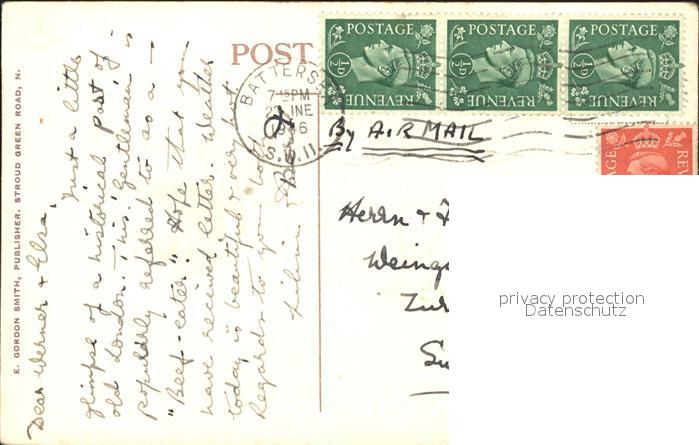 E. GORDON SMITH, PUBLISHER. STROUD GREEN ROAD, N.
Dear Werner & Elsa,
Just a little
glimpse of a historical part of
old London, - this "gentleman" is
popularly referred to as a -
"Beef-eater". Hope that you
have received letter. Weather
today is beautiful & very hot
Regards to you both
Lilian & Bert
POST
BATTERS
7-15PM
JNE
1946
S.W.11.
POSTAGE POSTAGE POSTAGE
½D ½D ½D
REVENUE REVENUE REVENUE
AGE REV
By AIR MAIL
Herrn &
Weing
Zur
Su
privacy protection
Datenschutz